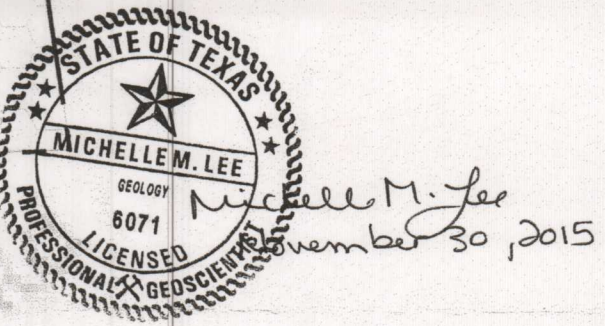 STATE OF TEXAS
MICHELLE M. LEE
GEOLOGY
6071
LICENSED
PROFESSIONAL GEOSCIENTIST
Michelle M. Lee
November 30, 2015